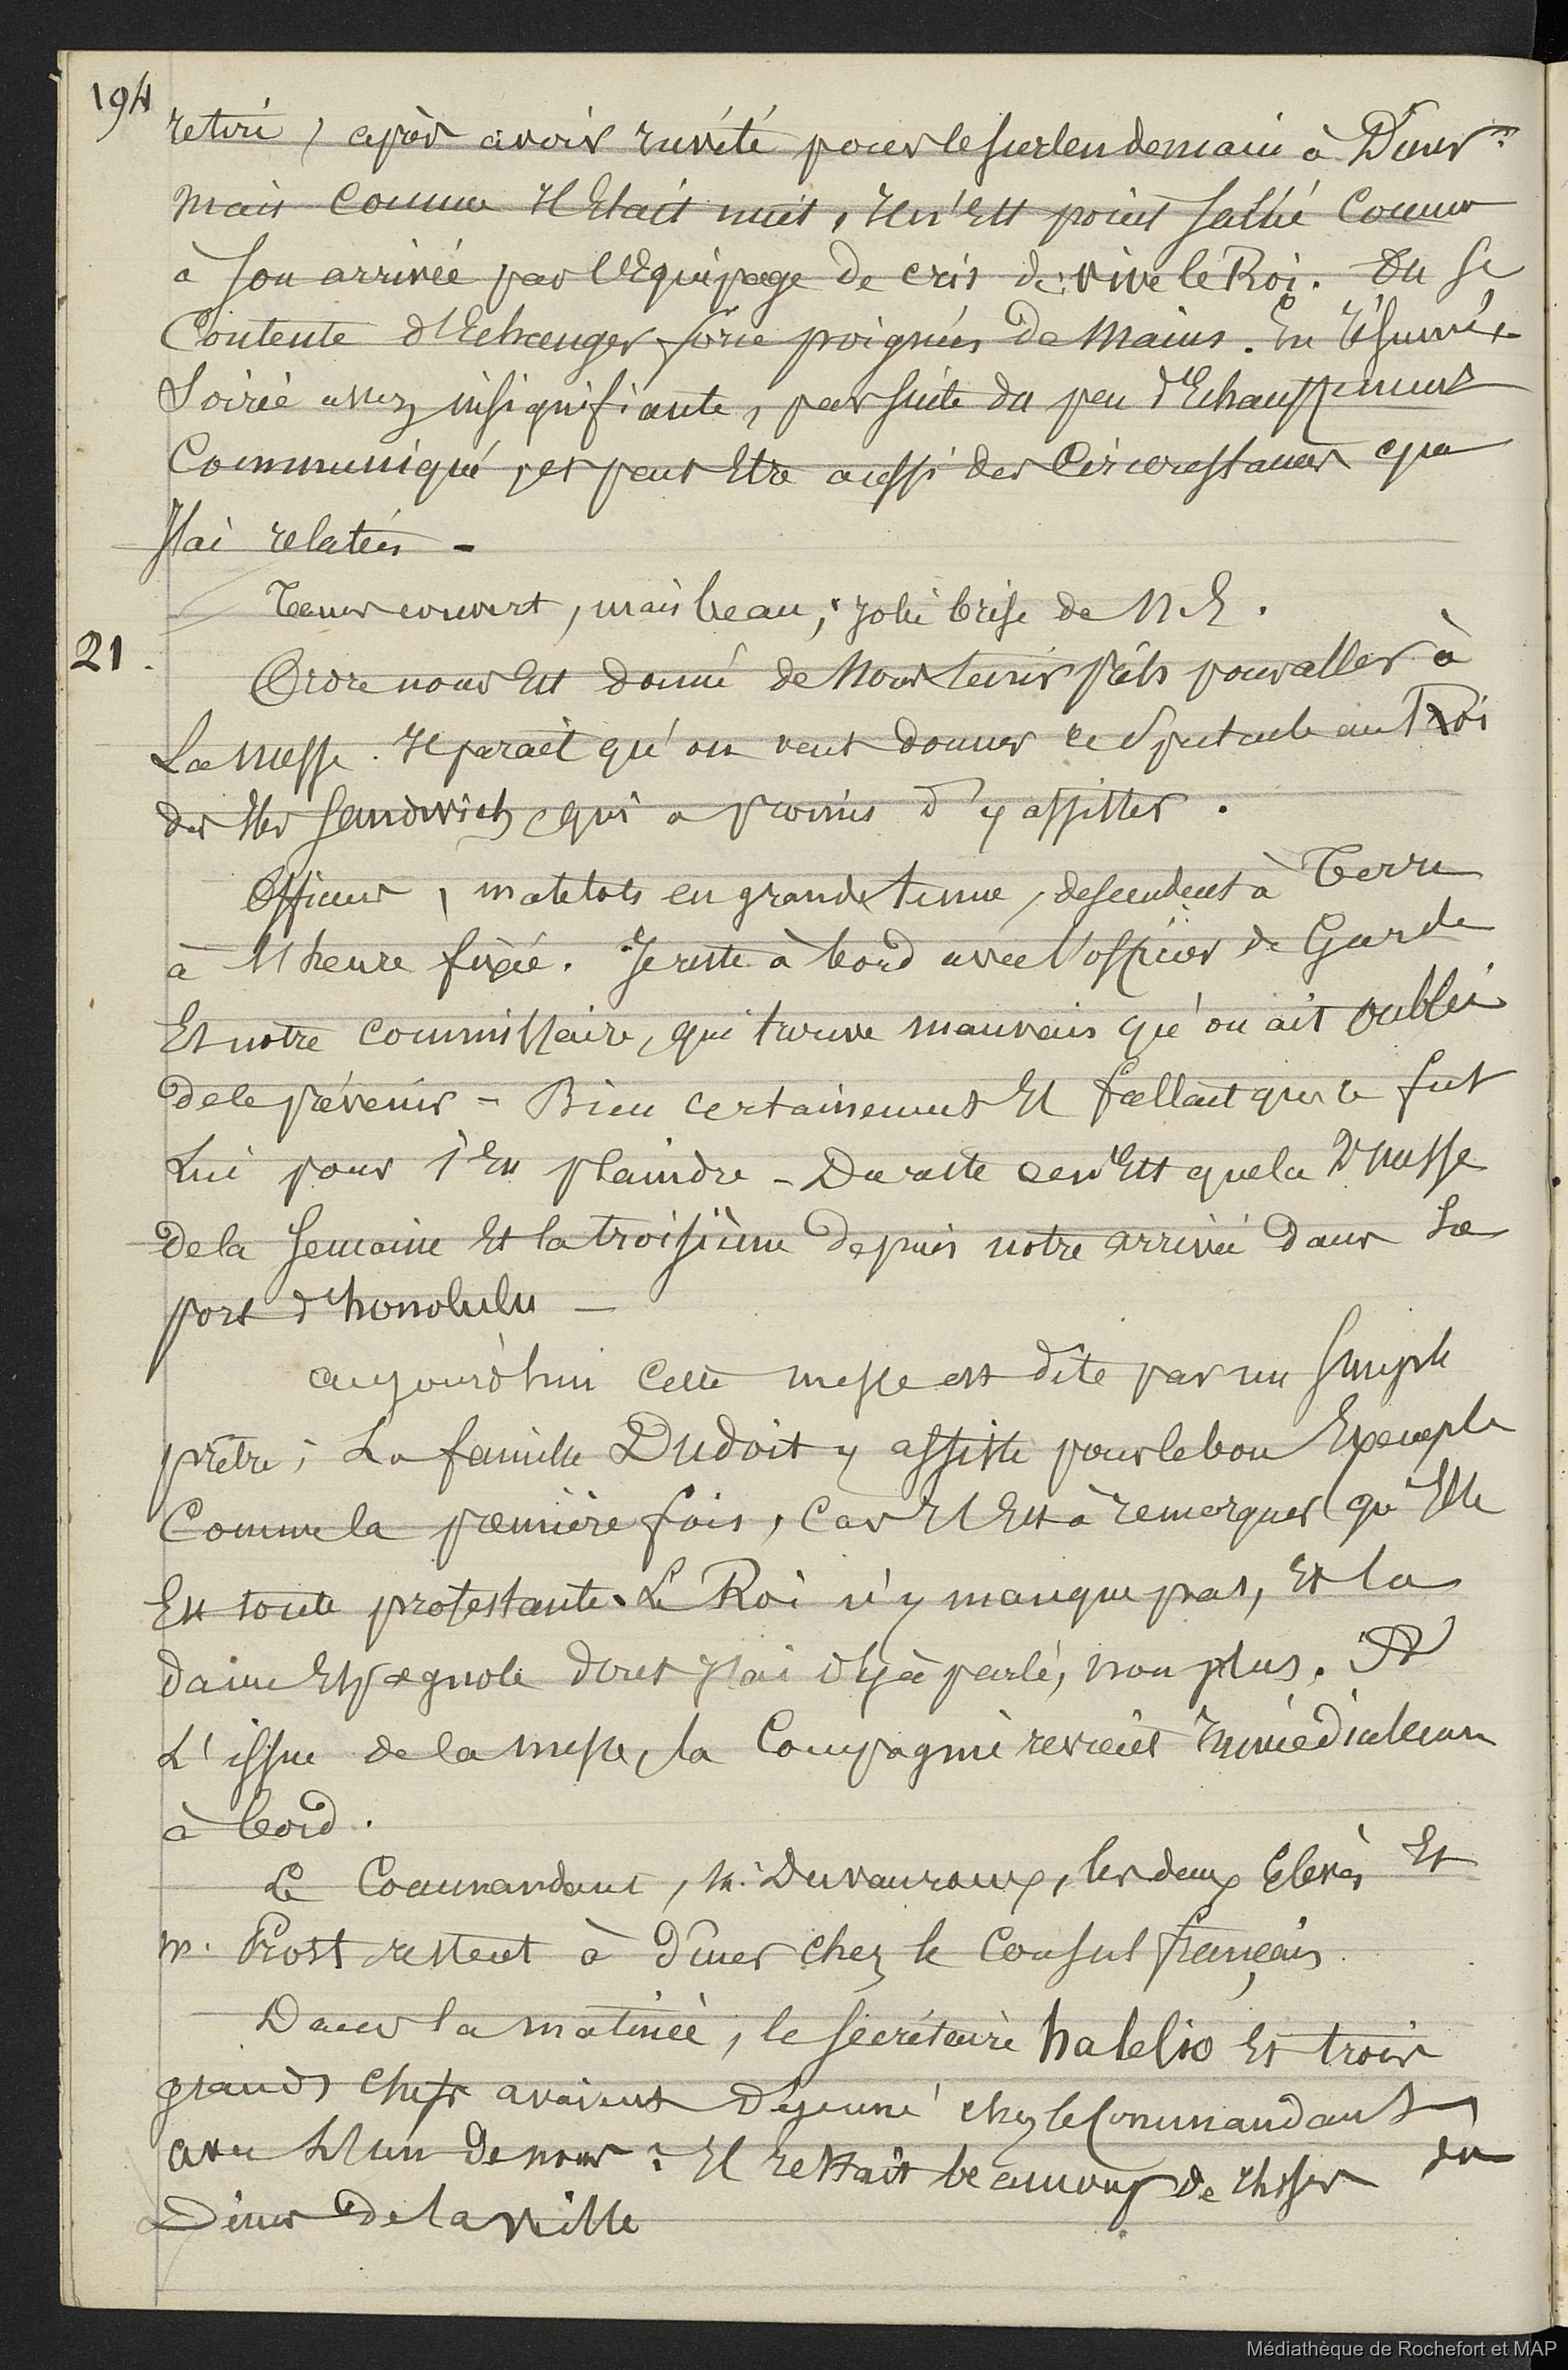 194
retiré, après avoir invité pour le surlendemain à Diner
mais comme Il Etait nuit, Il n'Est point salué Comme
à son arrivée par l'Equipage de cris de vive le Roi. On se
Contente d'Echanger force poignées de Mains. En résumé
Soirée assez insignifiante, par suite du peu d'Echauffement
Communiqué, et peut Etre aussi des Circonstances que
J'ai relatées -
Tems couvert, mais beau, jolie brise de N.E.
21.
Ordre nous Est donné de Nous tenir prêts pour aller à
La messe. Il parait qu'on veut donner ce Spectacle au Roi
des Iles Sandwich qui a promis d'y assister.
Officiers, matelots en grande tenue, descendent à Terre
à l'heure fixée. Je reste à bord avec l'officier de Garde
Et notre commissaire, qui trouve mauvais qu'on ait oublié
de le prévenir - Bien certainement Il fallait que ce fut
Lui pour s'En plaindre - Du reste ce n'Est que la 2e messe
de la Semaine Et la troisième depuis notre arrivée dans Le
port d'honolulu -
aujourd'hui cette messe est dite par un Simple
prêtre; La famille Dudoit y assiste pour le bon Exemple
Comme la première fois, Car Il Est à remarquer qu'Elle
Est toute protestante. Le Roi n'y manque pas, Et la
dame Espagnole dont J'ai déjà parlé, non plus. A
L'issue de la messe, la Compagnie revient Immédiatement
à bord.
Le Commandant, M. Duvauroux, les deux Elèves Et
M. Prost restent à diner chez le Consul français
Dans la matinée, le Secrétaire halelio Et trois
grands chefs avaient Déjeuné chez le Commandant
avec L'un de nous: Il restait beaucoup de choses du
Diner de la veille
Médiathèque de Rochefort et MAP